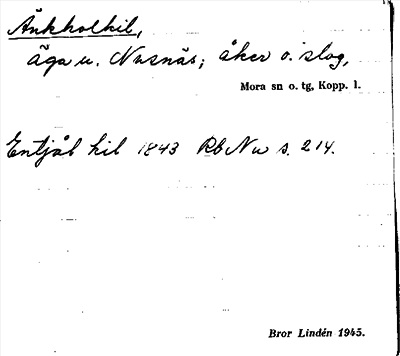 Änkholkil,
äga u. Nusnäs; åker o. slog,
Mora sn o. tg, Kopp. l.
Entjäl kil 1843 Rb Nu s. 214.
Bror Lindén 1945.